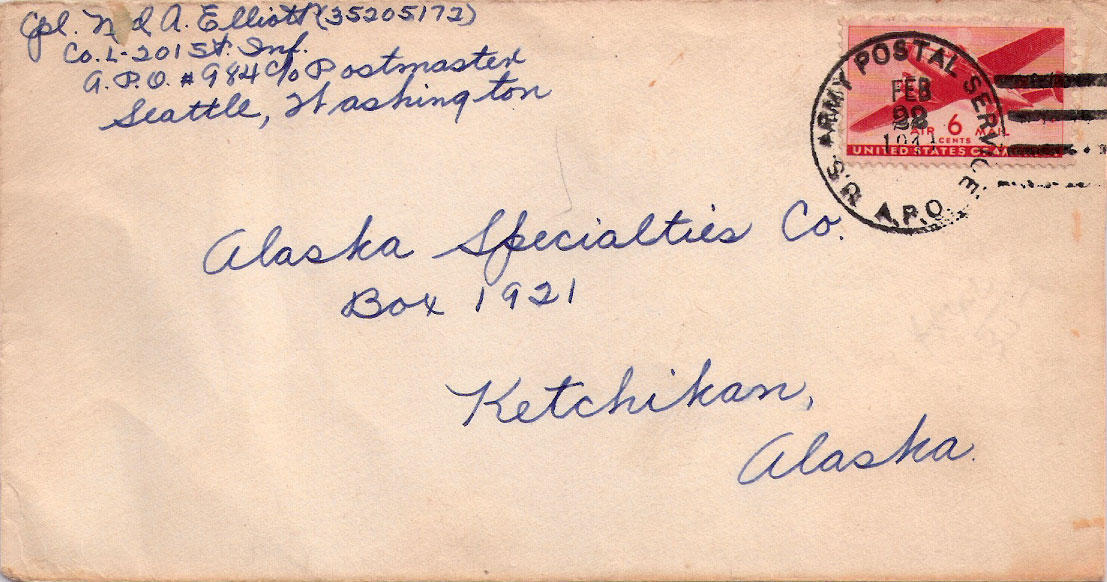 Cpl. A. Elliott (35205172)
Co. L - 201 St. Inf.
A.P.O. # 984 c/o Postmaster
Seattle, Washington
U.S. ARMY POSTAL SERVICE
A.P.O.
FEB
22
AIR 6 MAIL
CENTS
UNITED STATES OF AM
Alaska Specialties Co.
Box 1921
Ketchikan,
Alaska.